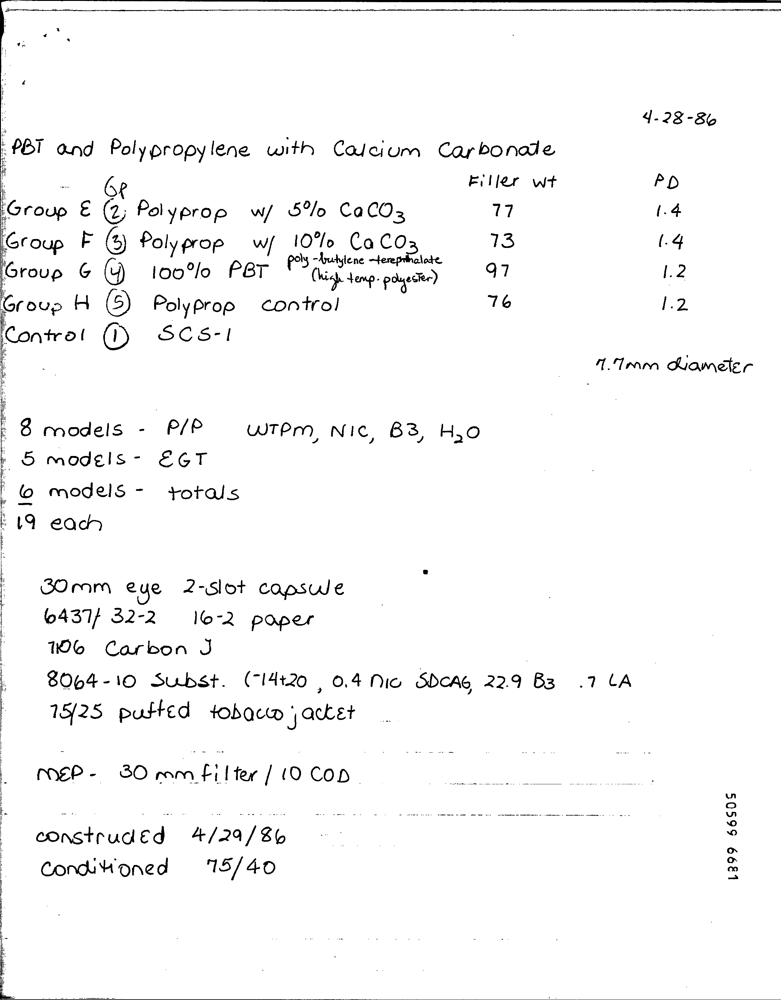 4-28-86
PBT and Polypropylene with Calcium Carbonate
Filler wt PD
Gp
Group E (2) Polyprop w/ 5% CaCO3 77 1.4
Group F (3) Polyprop w/ 10% CaCO3 73 1.4
poly-butylene-terepthalate
Group G (4) 100% PBT (high temp. polyester) 97 1.2
Group H (5) Polyprop control 76 1.2
Control (1) SCS-1
7.7mm diameter
8 models - P/P WTPM, NIC, B3, H2O
5 models - EGT
6 models - totals
19 each
30mm eye 2-slot capsule
6437/ 32-2 16-2 paper
7106 Carbon J
8064-10 Subst. (-14+20, 0.4 nic SDCAG, 22.9 B3 .7 LA
75/25 puffed tobacco jacket
MEP - 30 mm filter / 10 COD
constructed 4/29/86
Conditioned 75/40
50599 6681